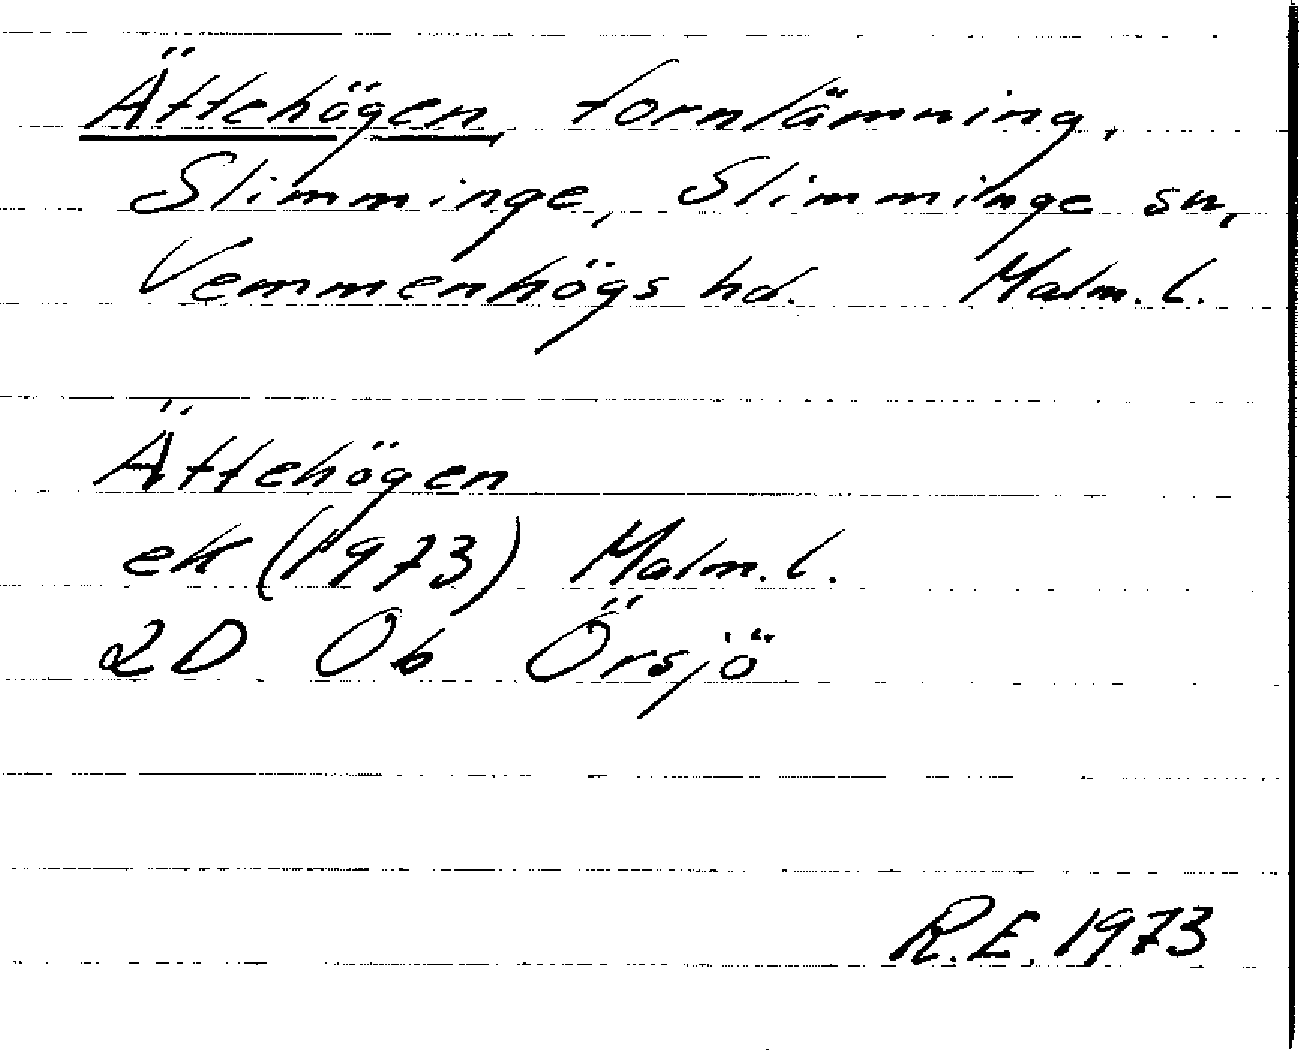 Ättehögen, fornlämning,
Slimminge, Slimminge sn,
Vemmenhögs hd. Malm. l.
Ättehögen
ek (1973) Malm. l.
2D 0b Örsjö
R.E. 1973